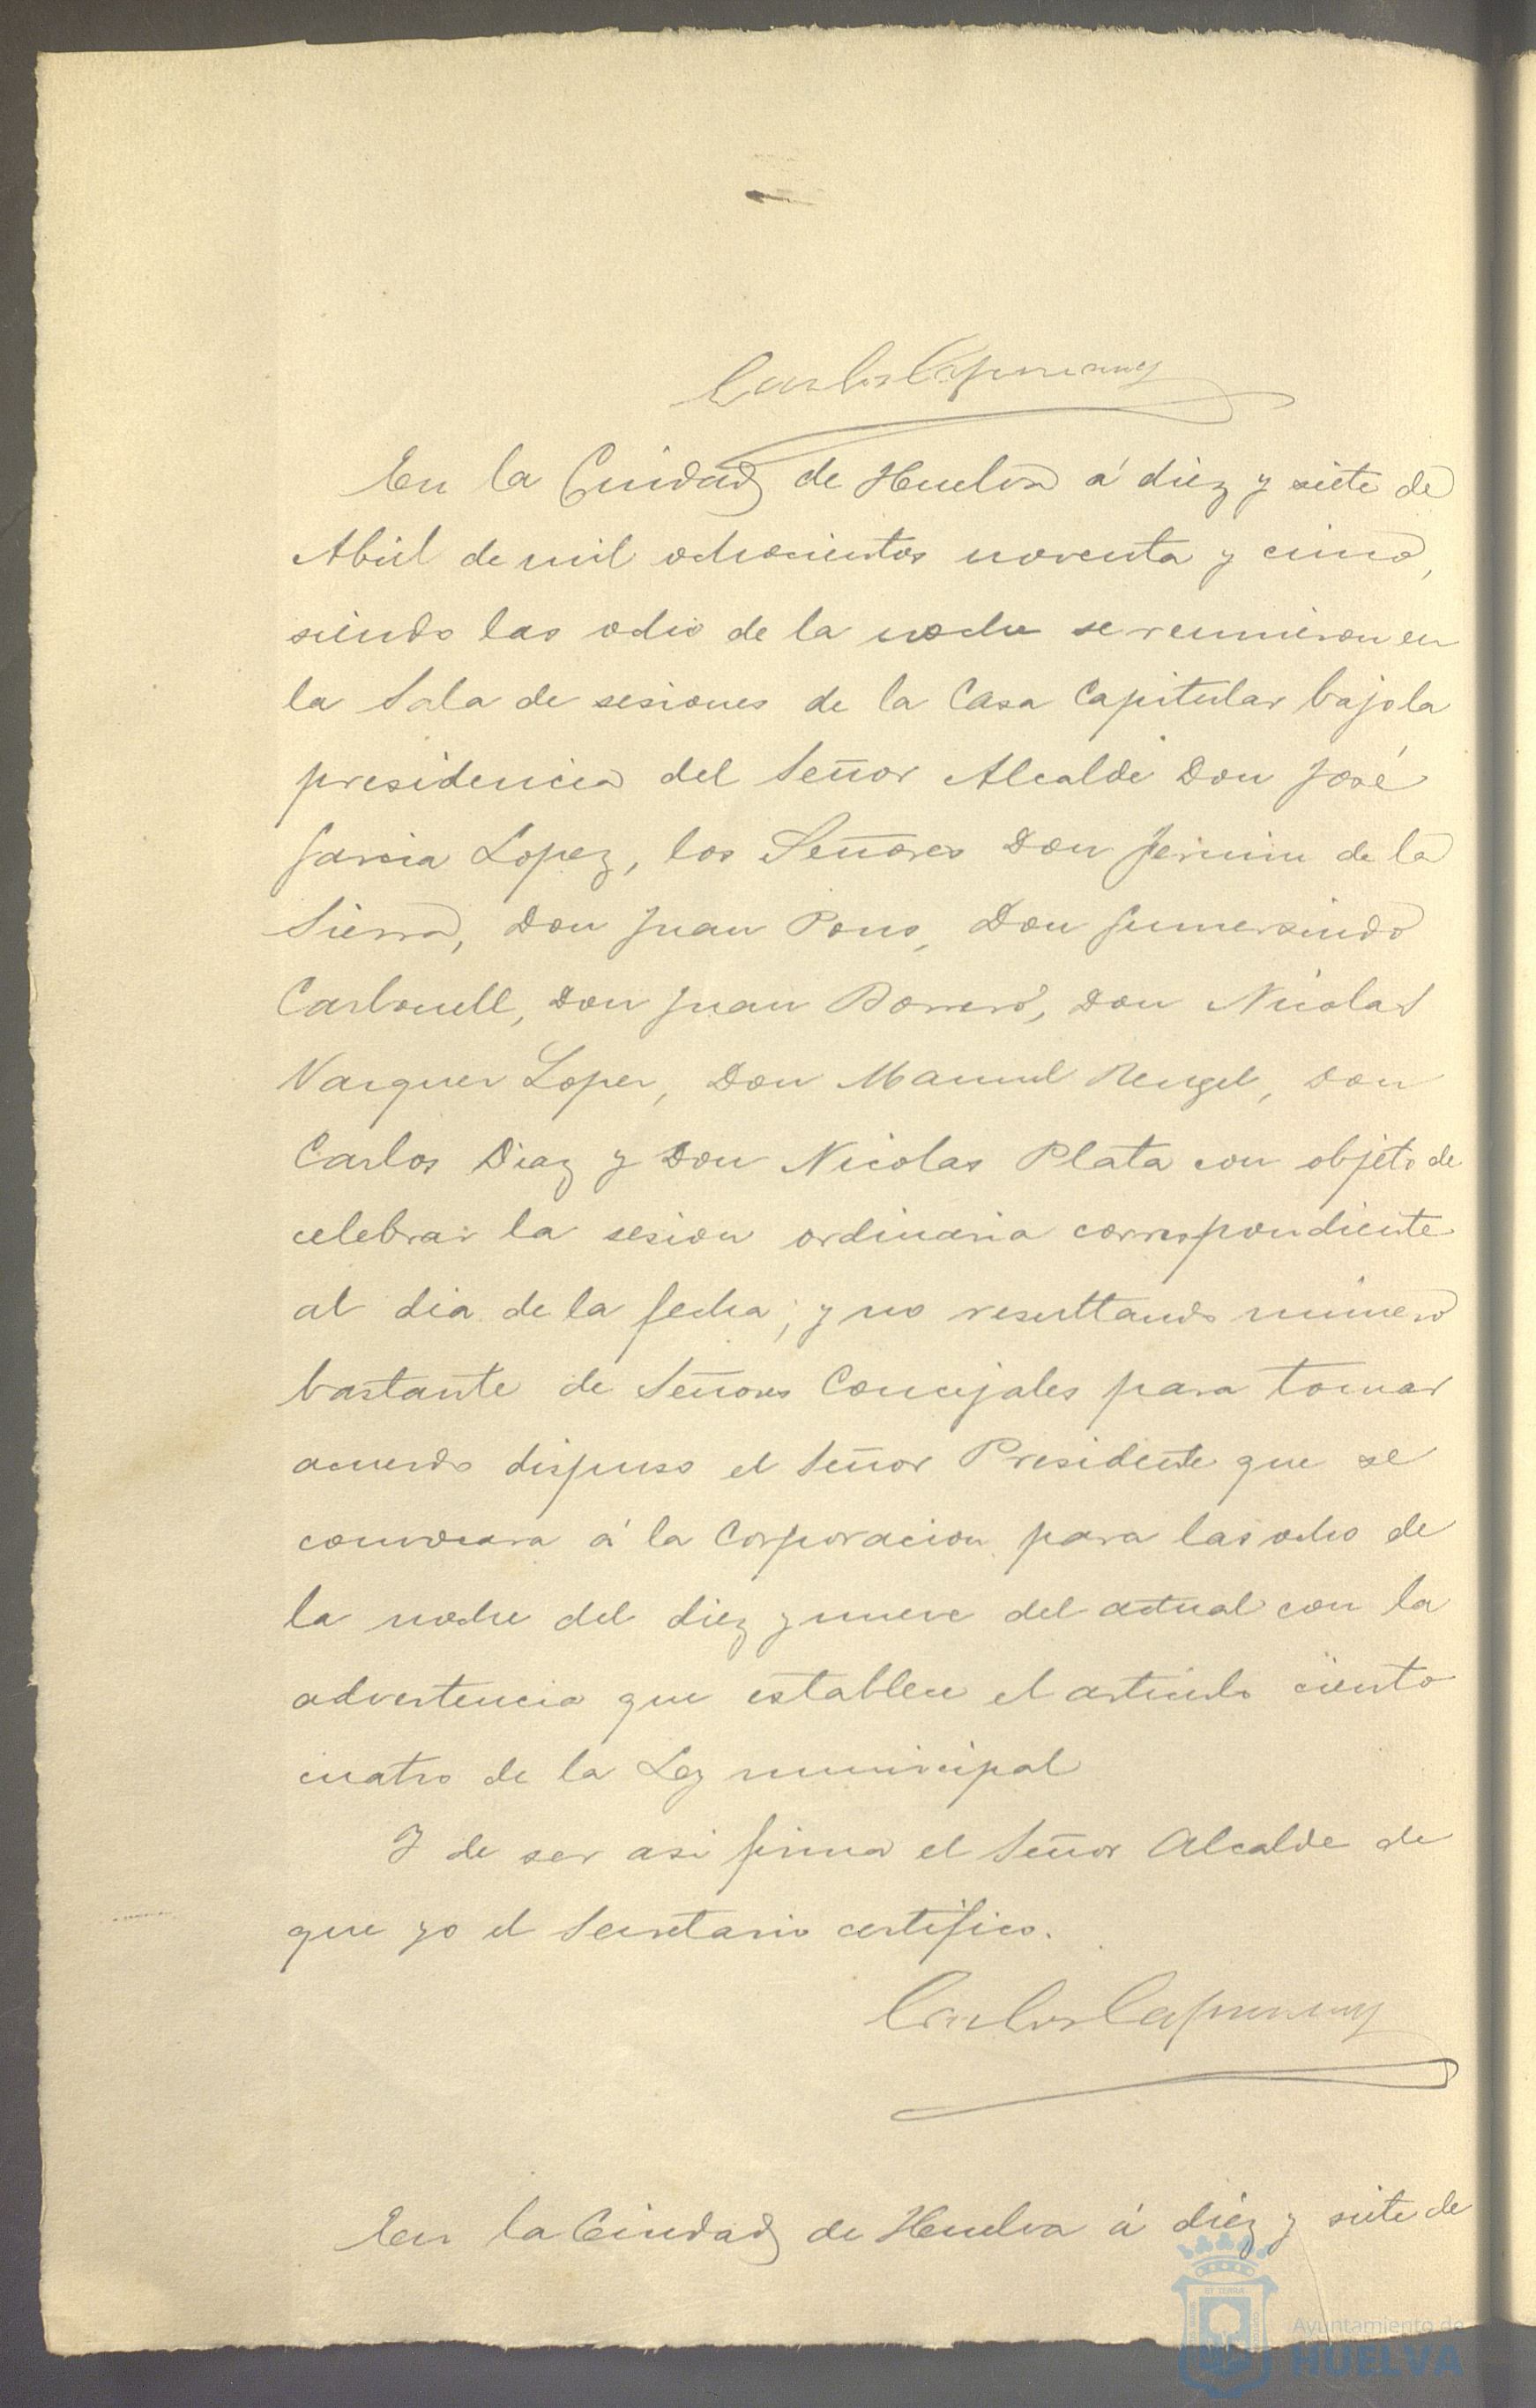 Carlos Capmany
En la Ciudad de Huelva á diez y siete de
Abril de mil ochocientos noventa y cinco,
siendo las ocho de la noche se reunieron en
la Sala de sesiones de la Casa Capitular bajo la
presidencia del Señor Alcalde Don José
Garcia Lopez, los Señores Don Fermin de la
Sierra, Don Juan Pons, Don Gumersindo
Carbonell, Don Juan Borrero, Don Nicolas
Vazquez Lopez, Don Manuel Rengel, Don
Carlos Diaz y Don Nicolas Plata con objeto de
celebrar la sesion ordinaria correspondiente
al dia de la fecha; y no resultando número
bastante de Señores Concejales para tomar
acuerdo dispuso el Señor Presidente que se
convocara á la Corporacion para las ocho de
la noche del diez y nueve del actual con la
advertencia que establece el articulo ciento
cuatro de la Ley municipal
Y de ser asi firma el Señor Alcalde de
que yo el Secretario certifico.
Carlos Capmany
En la Ciudad de Huelva á diez y siete de
Ayuntamiento de
HUELVA